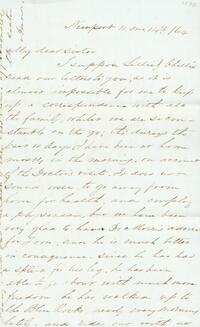 Newport June 14th, 164
My dear Sister
I suppose Lillie & Charlie
read our letters to you, as it is
almost impossible for me to keep
up a correspondence with all
the family, whilst we are so con-
stantly on the go, tho' during the
past 10 days I have been at home
mostly in the morning, on account
of the Doctor's visits. It does not
sound well to go away from
home for health, and employ
a physician, but we have been
very glad to have Dr. advice
for Tom, and he is much better
in consequence, since he has had
a splint for his leg, he has been
able to go about with much more
freedom he has walked up to
the Blue Rocks nearly every morning
lately, and rides out with us